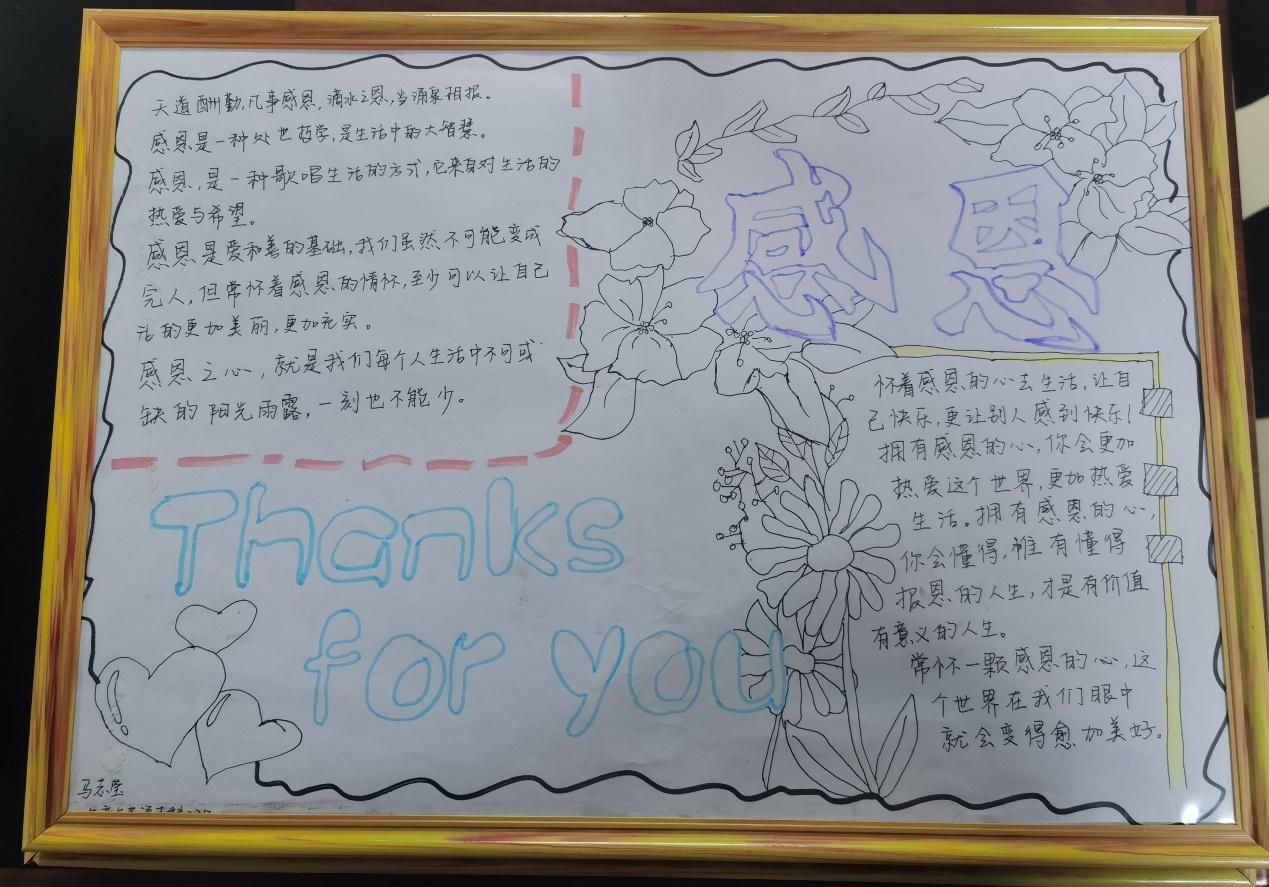 天道酬勤,凡事感恩,滴水之恩,当涌泉相报。
感恩是一种处世哲学,是生活中的大智慧。
感恩,是一种歌唱生活的方式,它来自对生活的
热爱与希望。
感恩是爱和善的基础,我们虽然不可能变成
完人,但常怀着感恩的情怀,至少可以让自己
活的更加美丽,更加充实。
感恩之心,就是我们每个人生活中不可或
缺的阳光雨露,一刻也不能少。
感恩
怀着感恩的心去生活,让自
己快乐,更让别人感到快乐!
拥有感恩的心,你会更加
热爱这个世界,更加热爱
生活。拥有感恩的心,
你会懂得,唯有懂得
报恩的人生,才是有价值
有意义的人生。
常怀一颗感恩的心,这
个世界在我们眼中
就会变得愈加美好。
Thanks
for you
马志莹